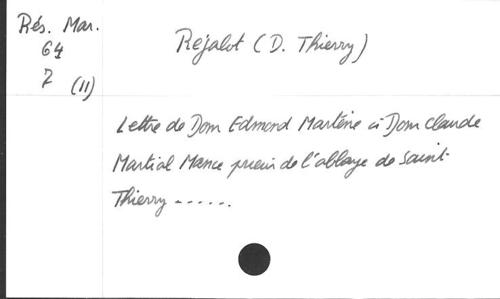 Rés. Mar.
64
7 (II)
Rejalot (D. Thierry)
Lettre de Dom Edmond Martène à Dom Claude
Martial Mance prieur de l'abbaye de Saint-
Thierry ......